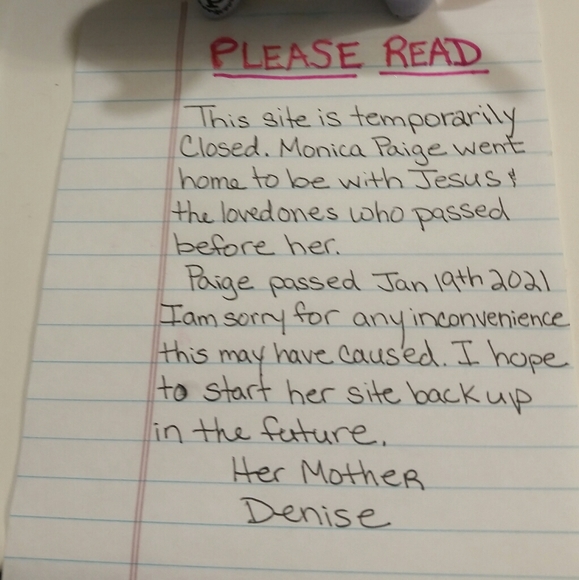 PLEASE READ
This site is temporarily
Closed. Monica Paige went
home to be with Jesus &
the loved ones who passed
before her.
Paige passed Jan 19th 2021
I am sorry for any inconvenience
this may have caused. I hope
to start her site back up
in the future.
Her Mother
Denise